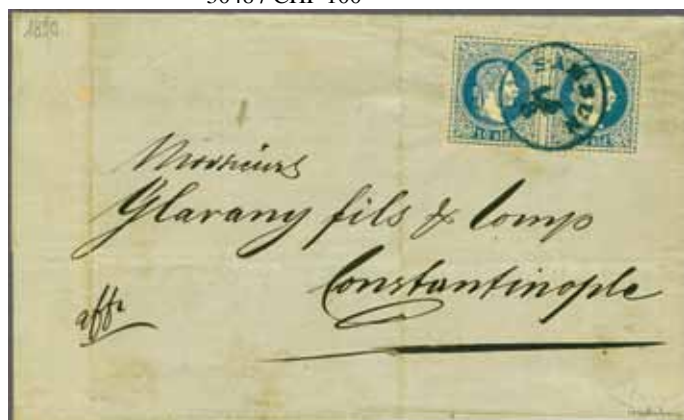 1870
SAMSUN
Monsieurs
Glavany fils & Comp
Constantinople
affr